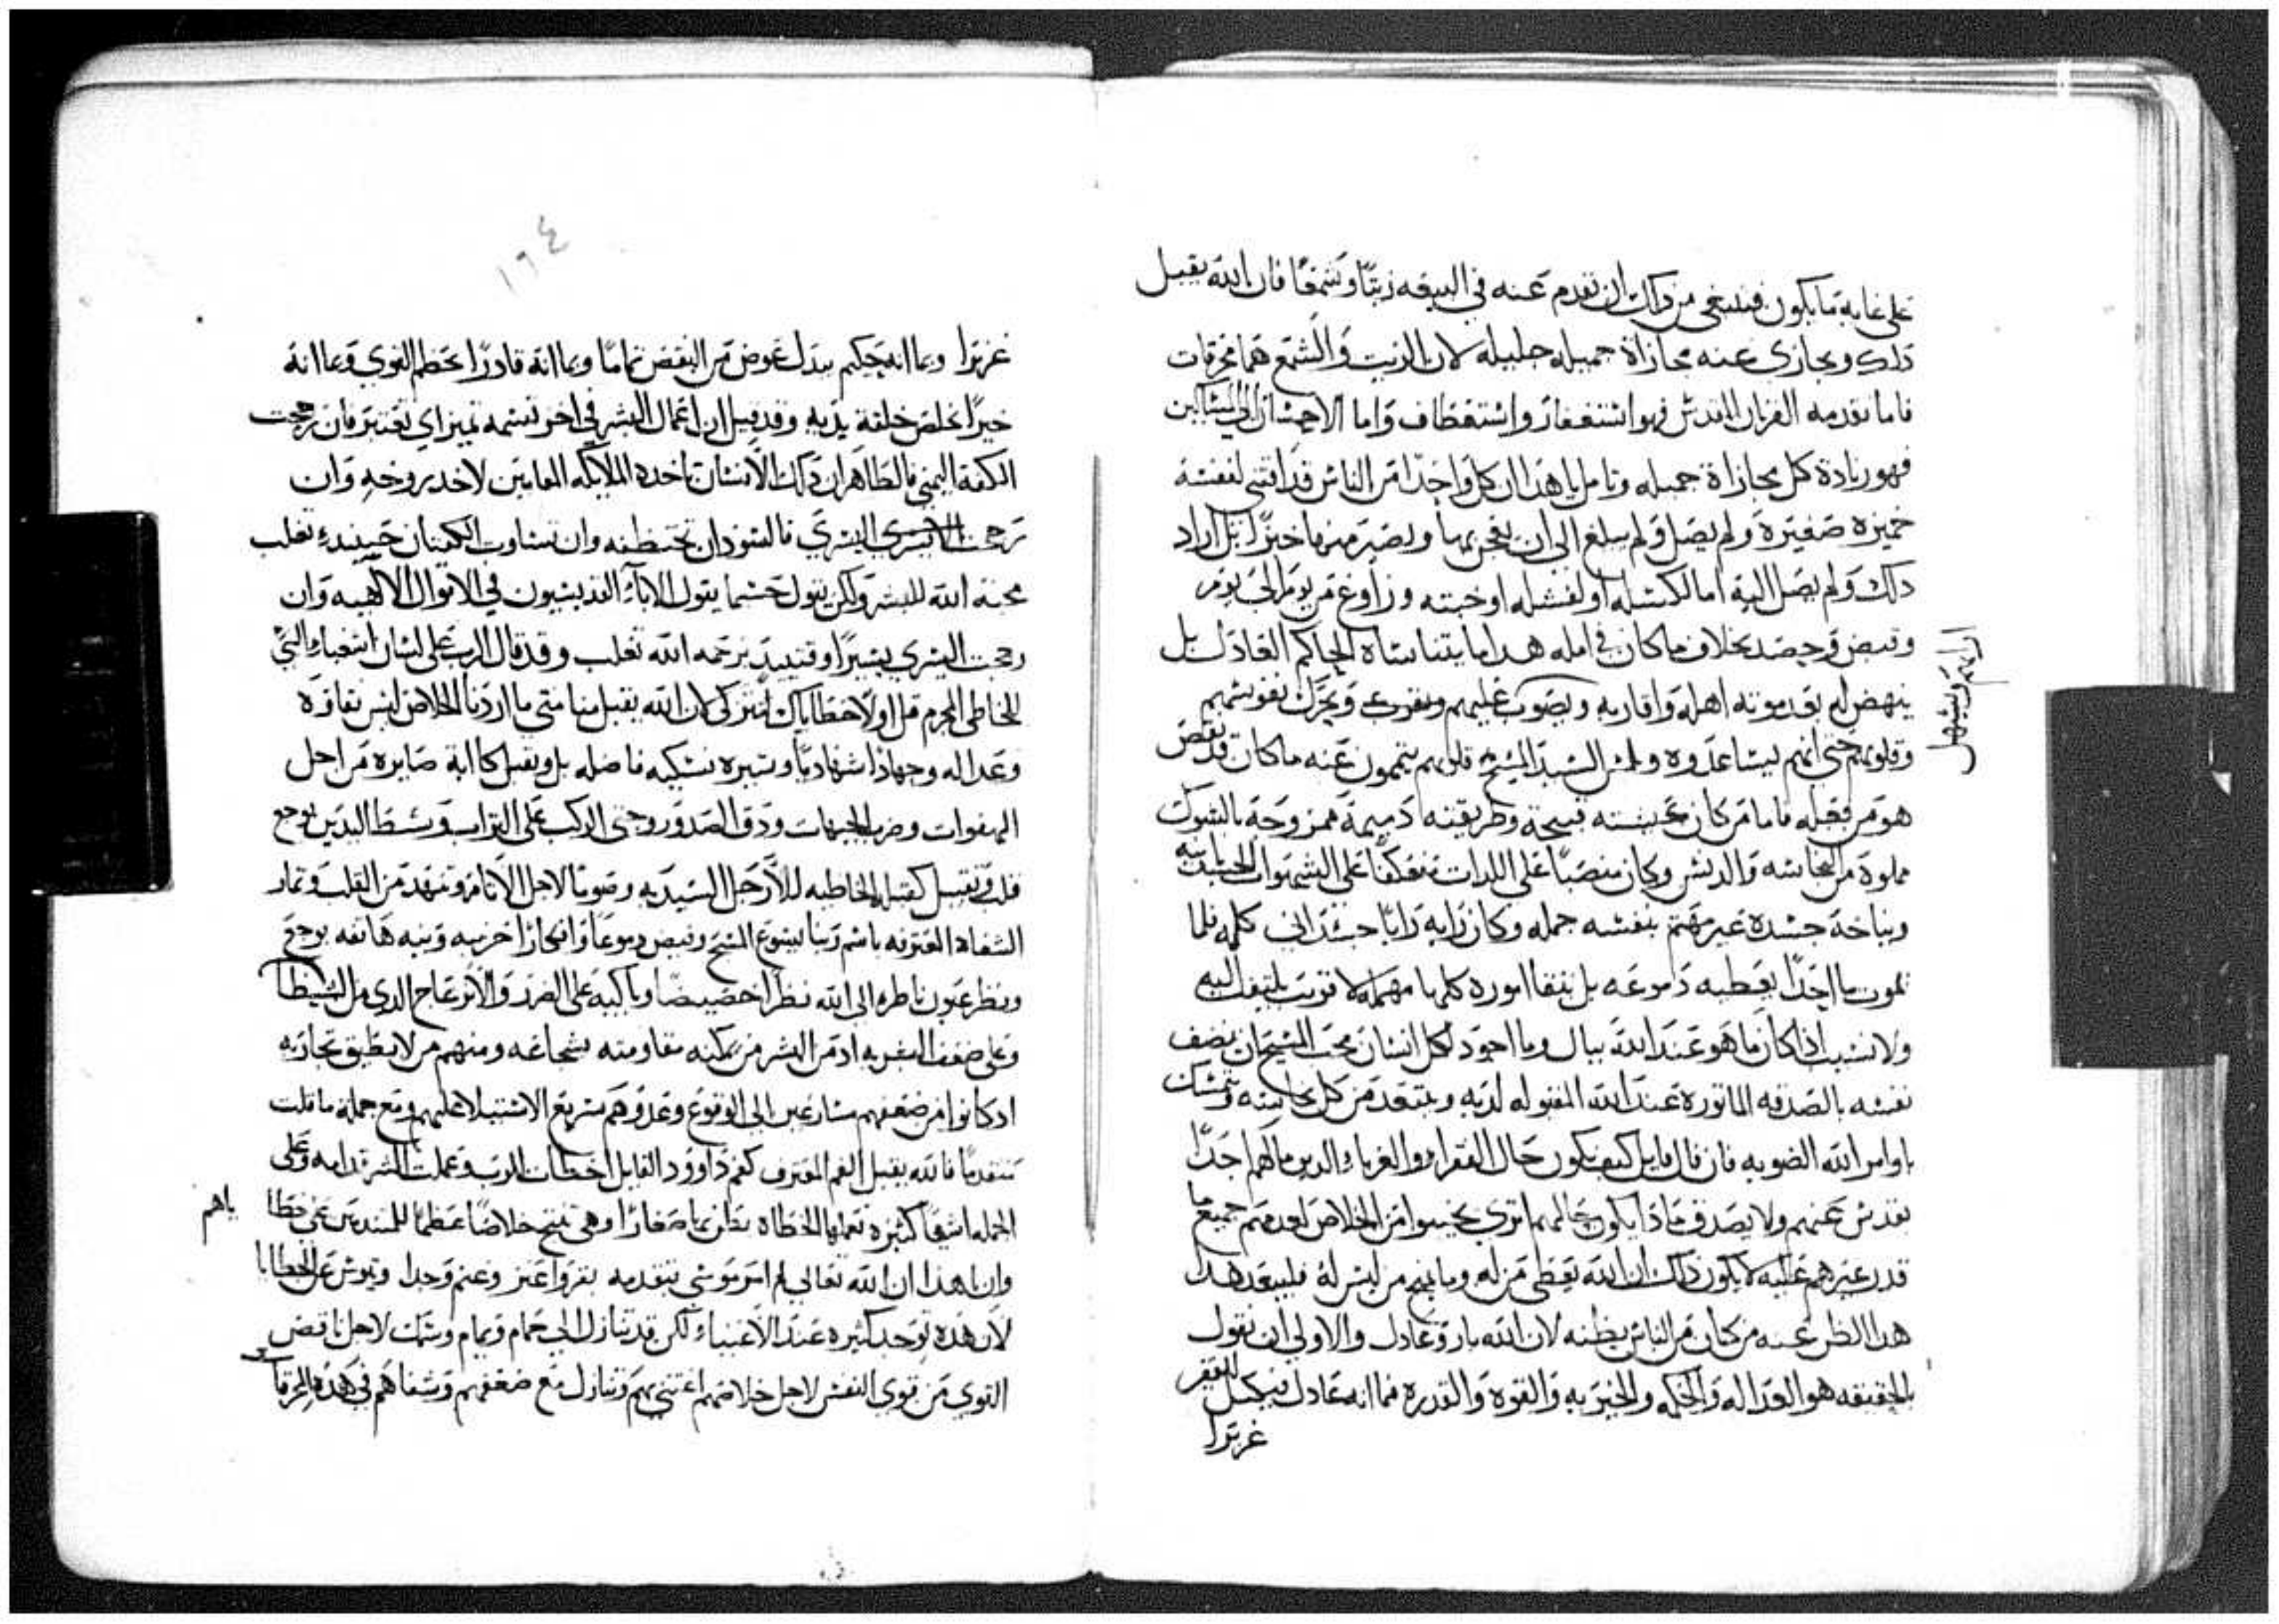 على غاية ما يكون فينبغي من ذلك ان تقدم عنه في البيعه زيتًا وشمعًا فان الله يقبل
ذلك ويجازي عنه مجازاة جميله جليله لان الزيت والشمع هما محرقات
فاما تقدمه القربان المقدس فهو استغفار واستعطاف واما الاحسان الي المساكين
فهو زيادة كل مجازاة جميله وتامل يا هذا ان كل واحدًا من الناس قد اقتني لنفسه
خميرة صغيرة ولم يصل ولم يبلغ الي ان يعجن بها ويصير منها خبزًا بل اراد
ذلك ولم يصل اليه اما لكسله او لفشله او خبته وزاوغ من يوم الي يوم
وقبض وحصد بخلاف ما كان في امله هدا ما يتناساه الحاكم العادل بل
ينهض له بعد موته اهله واقاربه ويصوب عليهم ويحرك نفوسهم
اراهم ويسهل
وقلوبهم حتي انهم يساعدوه ويلمس السيد المسيح قلوبهم يتممون عنه ما كان قد نقص
هو من فعله فاما من كان عيشته قبيحة وطريقته دميمة ممزوحة بالشوك
مملوة من النجاسه والدنس وكان منصبًا على اللدات منعكفًا على الشهوات الحيوانيه
وبناحة جسده غير مهتم بنفسه جمله وكان رايه رايًا جسداني كله فلما
يموت ما احدًا يعطيه دموعه بل يبقا اموره كلها مهمله لا قريب يلتفت اليه
ولا نسيب اذا كان ما هو عند الله ببال وما اجود لكل انسان محب المسيح ان يضف
نفسه بالصدقه الماثورة عند الله المقبوله لديه ويبتعد من كل نجاسه ويتمسك
باوامر الله الضويه فان قال قايل كيف يكون حال الفقراء والغرباء الدين ما لهم احدًا
يقدس عنهم ولا يصدق ماذا يكون حالهم اتري يخيبوا من الخلاص لعدمهم جميع ما
قدر غيرهم عليه لا يكون ذلك ان الله يعطي من له وما يمنع من ليس له فليبعد هدا
هدا الظن عنه من كان من الناس يظنه لان الله بار وعادل والاولي ان نقول
بالحقيقه هو العداله والحكمه والخيريه والقوه والقدره فما انه عادل فيكيل الفقير
غزيرا
١٦٤
غزيرا وبما انه حكيم يبدل عوض من النقص تمامًا وبما انه قادرًا يحطم القوي وبما انه
خيرًا يخلص خلقة يديه وقد قيل ان اعمال البشر في اخر نسمه تميز اي تعتبر فان رجحت
الكفة اليمني فالظاهر ان ذلك الانسان تاخده الملايكه العاينين لاخد روحه وان
رجحت اليسري فالسودان تختطفه وان تساوت الكفتان حينيذ تغلب
محبة الله للبشر ولكن نقول حسبما يقول الاباء القديسيون في الاقوال الالهيه وان
رجحت اليسري يسيرًا وقتيد برحمه الله تغلب وقد قال الرب على لسان اشعياء النبي
للخاطي المجرم قل اولا خطاياك لتتزكي لان الله يقبل منا متي ما اردنا الخلاص ليس نقاوه
وعداله وجهادًا شهاديًا وسيره نسكيه فاضله بل ويقبل كاابة صابره من اجل
الهفوات وضرب الجبهات ودق الصدور وجتي الركب علي التراب وبسط اليدين بوجع
قلب ويقبل كقبل الخاطيه للارجل السيديه وصوتًا لاجل الاثام وتنهد من القلب وثمار
الشفاه المعترفه باسم ربنا يسوع المسيح وقبض دموعًا وافكارًا حزينه ونيه هاتفه بوجع
وينظر عيون ناظره الي الله نظرًا خصيصًا وباكيه على الضرر والازعاج الدي من الشيطان
وعلى ضعف البشريه اد من البشر من يمكنه مقاومته بشجاعه ومنهم من لا يطيق تجاربه
ادكانوا من ضعفهم مسارعين الي الوقوع وعدوهم سريع الاستيلا عليهم ومع جملة ما قلت
متقدمًا فالله يقبل الفم المعترف كفم داوود القايل اخطات للرب وعملت الشر قدامه وعلى
الجمله اشيًا كثيره تعملها الخطاه تظن بها صغارًا وهي تنتج خلاصًا عظيمًا للمتندمين عن خطا
ياهم
وان يا هذا ان الله تعالى لم امر موسي بتقدمه بقر واعنز وغنم وجدا وتيوس عن الخطايا
لان هده توجد كثيره عند الاغنياء لكن قد تنازل الي حمام ويمام وسلت لاجل ناقص
القوي من قوي النفس لاجل خلاصهم اعتني بهم وتنازل مع ضعفهم وشفاهم في هذه المحرقات